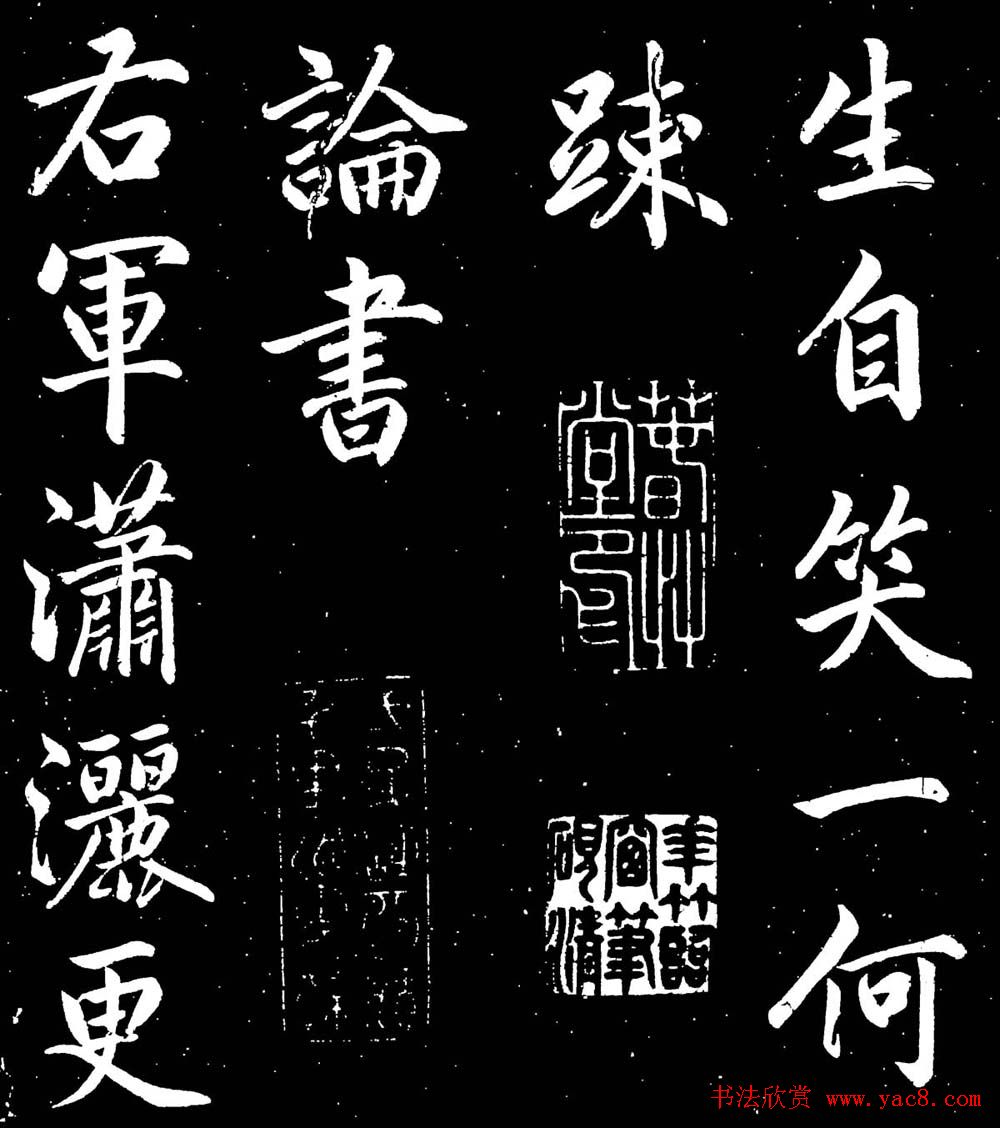 生自笑一何
踈
春艸堂印
論書
右軍瀟灑更
书法欣赏 www.yac8.com